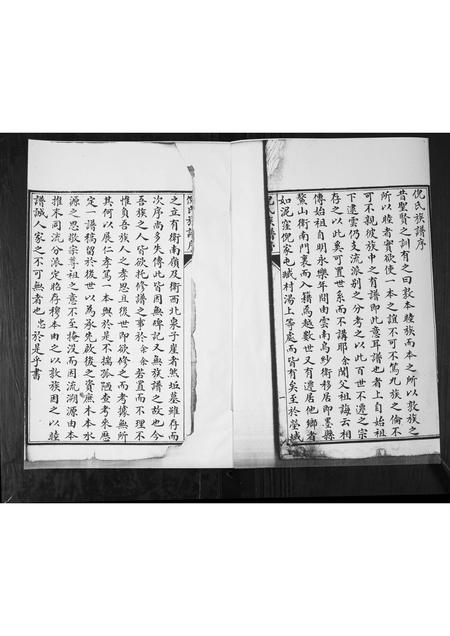 倪氏族譜序
昔聖賢之訓有之曰敦本睦族而本之所以敦族之
所以睦者實欲使一本之誼不可不篤九族之倫不
可不親彼族中之有譜即此意耳譜也者上自始祖
下逮雲仍支流派別之分考之以此百世不遷之宗
存之以此奚可置世系而不講耶余聞父祖誨云相
傳始祖自明永樂年間由雲南烏紗衛移居即墨縣
鰲山衛南門裏而入籍焉越數世又有遷居他鄉者
如泥窪倪家屯臧村湯上等處而皆有矣至於塋域
倪氏族譜序
之立有衛南嶺及衛西北泉子崖者然坵墓雖存而
次序尚多失傳此皆因無碑記又無族譜之故也今
吾族之人皆欲托修譜之事於余余若置而不理不
惟負吾族人之孝思且後世即欲修之而考據無所
其何以展仁孝篤一本與於是不揣孤陋查考來歷
定一譜稿留於後世以為承先啟後之資庶木本水
源之思敬宗尊祖之意不至掩沒而因流溯源由本
推末同流分派定昭存穆本由之以敦族因之以睦
譜誠人家之不可無者也忠於是乎書